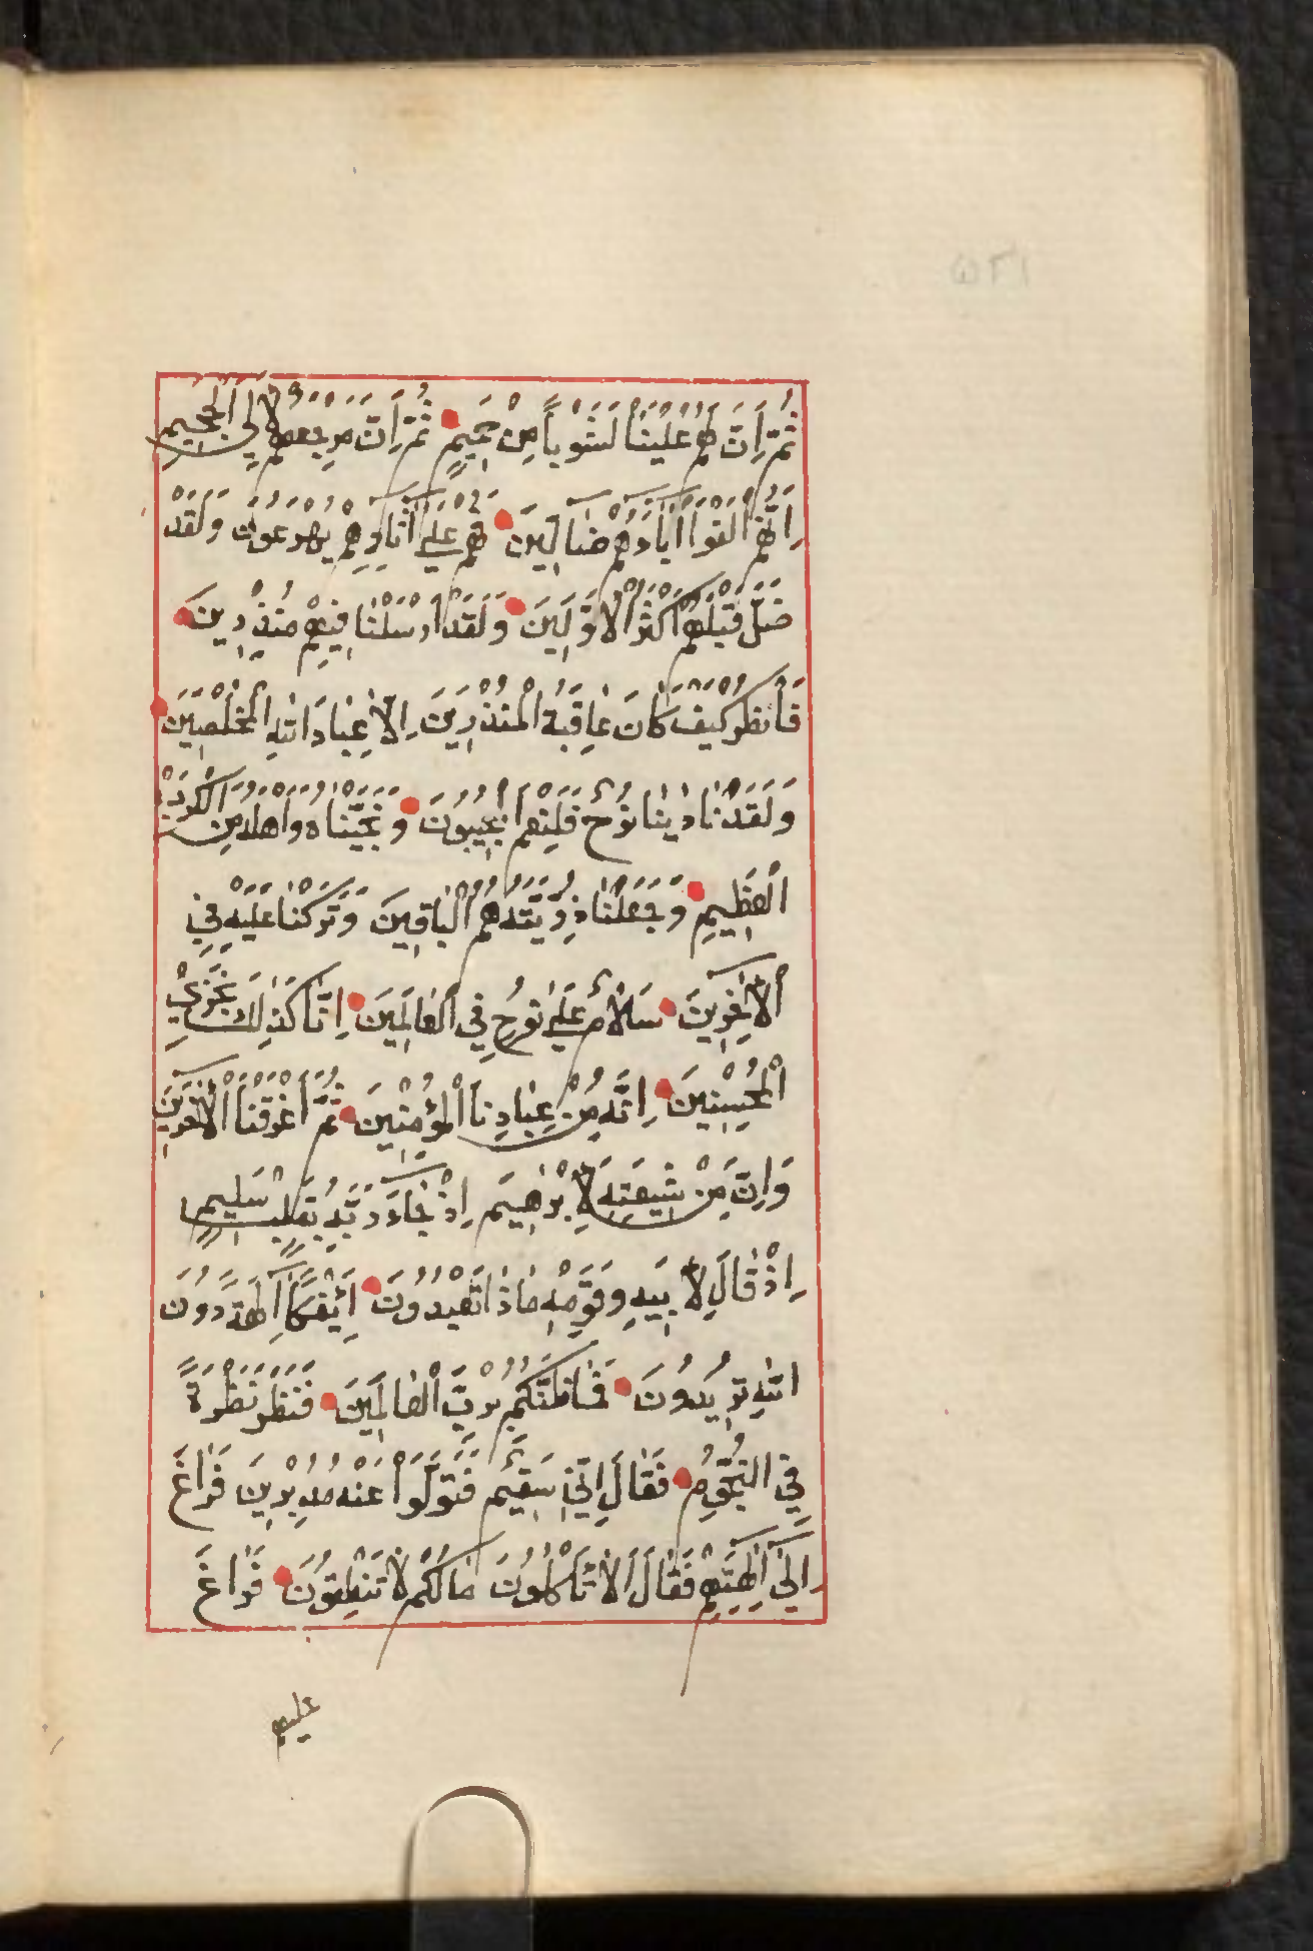 ثُمَّ اِنَّ لَهُمْ عَلَيْنَا لَشَوْباً مِنْ حَمِيمٍ ثُمَّ اِنَّ مَرْجِعَهُمْ لَاِلَى الْجَحِيمِ
اِنَّهُمْ اَلْفَوْا اٰبَآءَهُمْ ضَآلِّينَ فَهُمْ عَلٰى اٰثَارِهِمْ يُهْرَعُونَ وَلَقَدْ
ضَلَّ قَبْلَهُمْ اَكْثَرُ الْاَوَّلِينَ وَلَقَدْ اَرْسَلْنَا فِيهِمْ مُنْذِرِينَ
فَانْظُرْ كَيْفَ كَانَ عَاقِبَةُ الْمُنْذَرِينَ اِلَّا عِبَادَ اللهِ الْمُخْلَصِينَ
وَلَقَدْ نَادٰينَا نُوحٌ فَلَنِعْمَ الْمُجِيبُونَ وَنَجَّيْنَاهُ وَاَهْلَهُ مِنَ الْكَرْبِ
الْعَظِيمِ وَجَعَلْنَا ذُرِّيَّتَهُ هُمُ الْبَاقِينَ وَتَرَكْنَا عَلَيْهِ فِي
الْاٰخِرِينَ سَلَامٌ عَلٰى نُوحٍ فِي الْعَالَمِينَ اِنَّا كَذٰلِكَ نَجْزِي
الْمُحْسِنِينَ اِنَّهُ مِنْ عِبَادِنَا الْمُؤْمِنِينَ ثُمَّ اَغْرَقْنَا الْاٰخَرِينَ
وَاِنَّ مِنْ شِيعَتِهِ لَاِبْرٰهِيمَ اِذْ جَآءَ رَبَّهُ بِقَلْبٍ سَلِيمٍ
اِذْ قَالَ لِاَبِيهِ وَقَوْمِهِ مَاذَا تَعْبُدُونَ اَئِفْكاً اٰلِهَةً دُونَ
اللهِ تُرِيدُونَ فَمَا ظَنُّكُمْ بِرَبِّ الْعَالَمِينَ فَنَظَرَ نَظْرَةً
فِي النُّجُومِ فَقَالَ اِنِّي سَقِيمٌ فَتَوَلَّوْا عَنْهُ مُدْبِرِينَ فَرَاغَ
اِلٰى اٰلِهَتِهِمْ فَقَالَ اَلَا تَأْكُلُونَ مَا لَكُمْ لَا تَنْطِقُونَ فَرَاغَ
عليهم